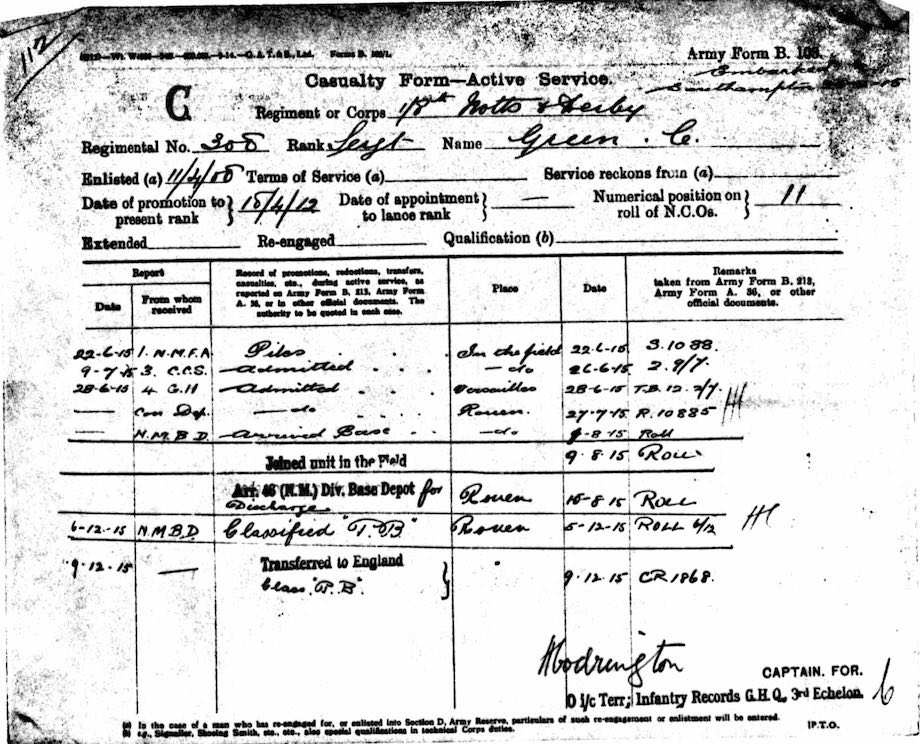 112
Forms B. 103/1.
Army Form B. 103.
Casualty Form—Active Service.
Embarked
Southampton
C
Regiment or Corps 1/8th Notts & Derby
Regimental No. 308 Rank Sergt Name Green. C.
Enlisted (a) 11/4/08 Terms of Service (a) Service reckons from (a)
Date of promotion to present rank } 15/4/12 Date of appointment to lance rank } — Numerical position on roll of N.C.Os. } 11
Extended Re-engaged Qualification (b)
Report
Date
From whom received
Record of promotions, reductions, transfers, casualties, etc., during active service, as reported on Army Form B. 213, Army Form A. 36, or in other official documents. The authority to be quoted in each case.
Place
Date
Remarks taken from Army Form B. 213, Army Form A. 36, or other official documents.
22-6-15 1. N.M.F.A Piles . . . In the field 22.6-15 3.1088.
9-7-15 3. C.C.S. Admitted . . . — do 26-6-15 2.9/7.
28-6-15 4 G.H Admitted . . . Versailles 28-6-15 T.B.12. 2/7.
— Con Dep. — do . . . Rouen. 27-7-15 R.10885
— N.M.B.D. Arrived Base . . — do 9-8-15 Roll
Joined unit in the Field 9.8.15 Roll
Arr. 46 (N.M.) Div. Base Depot for Discharge Rouen 15-8-15 Roll
6-12-15 N.M.B.D Classified "P.B" Rouen 5-12-15 ROLL 6/12
9.12.15 — Transferred to England Class "P.B". } 9.12.15 CR1868.
CAPTAIN. FOR.
O i/c Terr; Infantry Records G.H.Q. 3rd Echelon.
(a) In the case of a man who has re-engaged for, or enlisted into Section D, Army Reserve, particulars of such re-engagement or enlistment will be entered.
(b) e.g., Signaller, Shoeing Smith, etc., etc., also special qualifications in technical Corps duties.
[P.T.O.